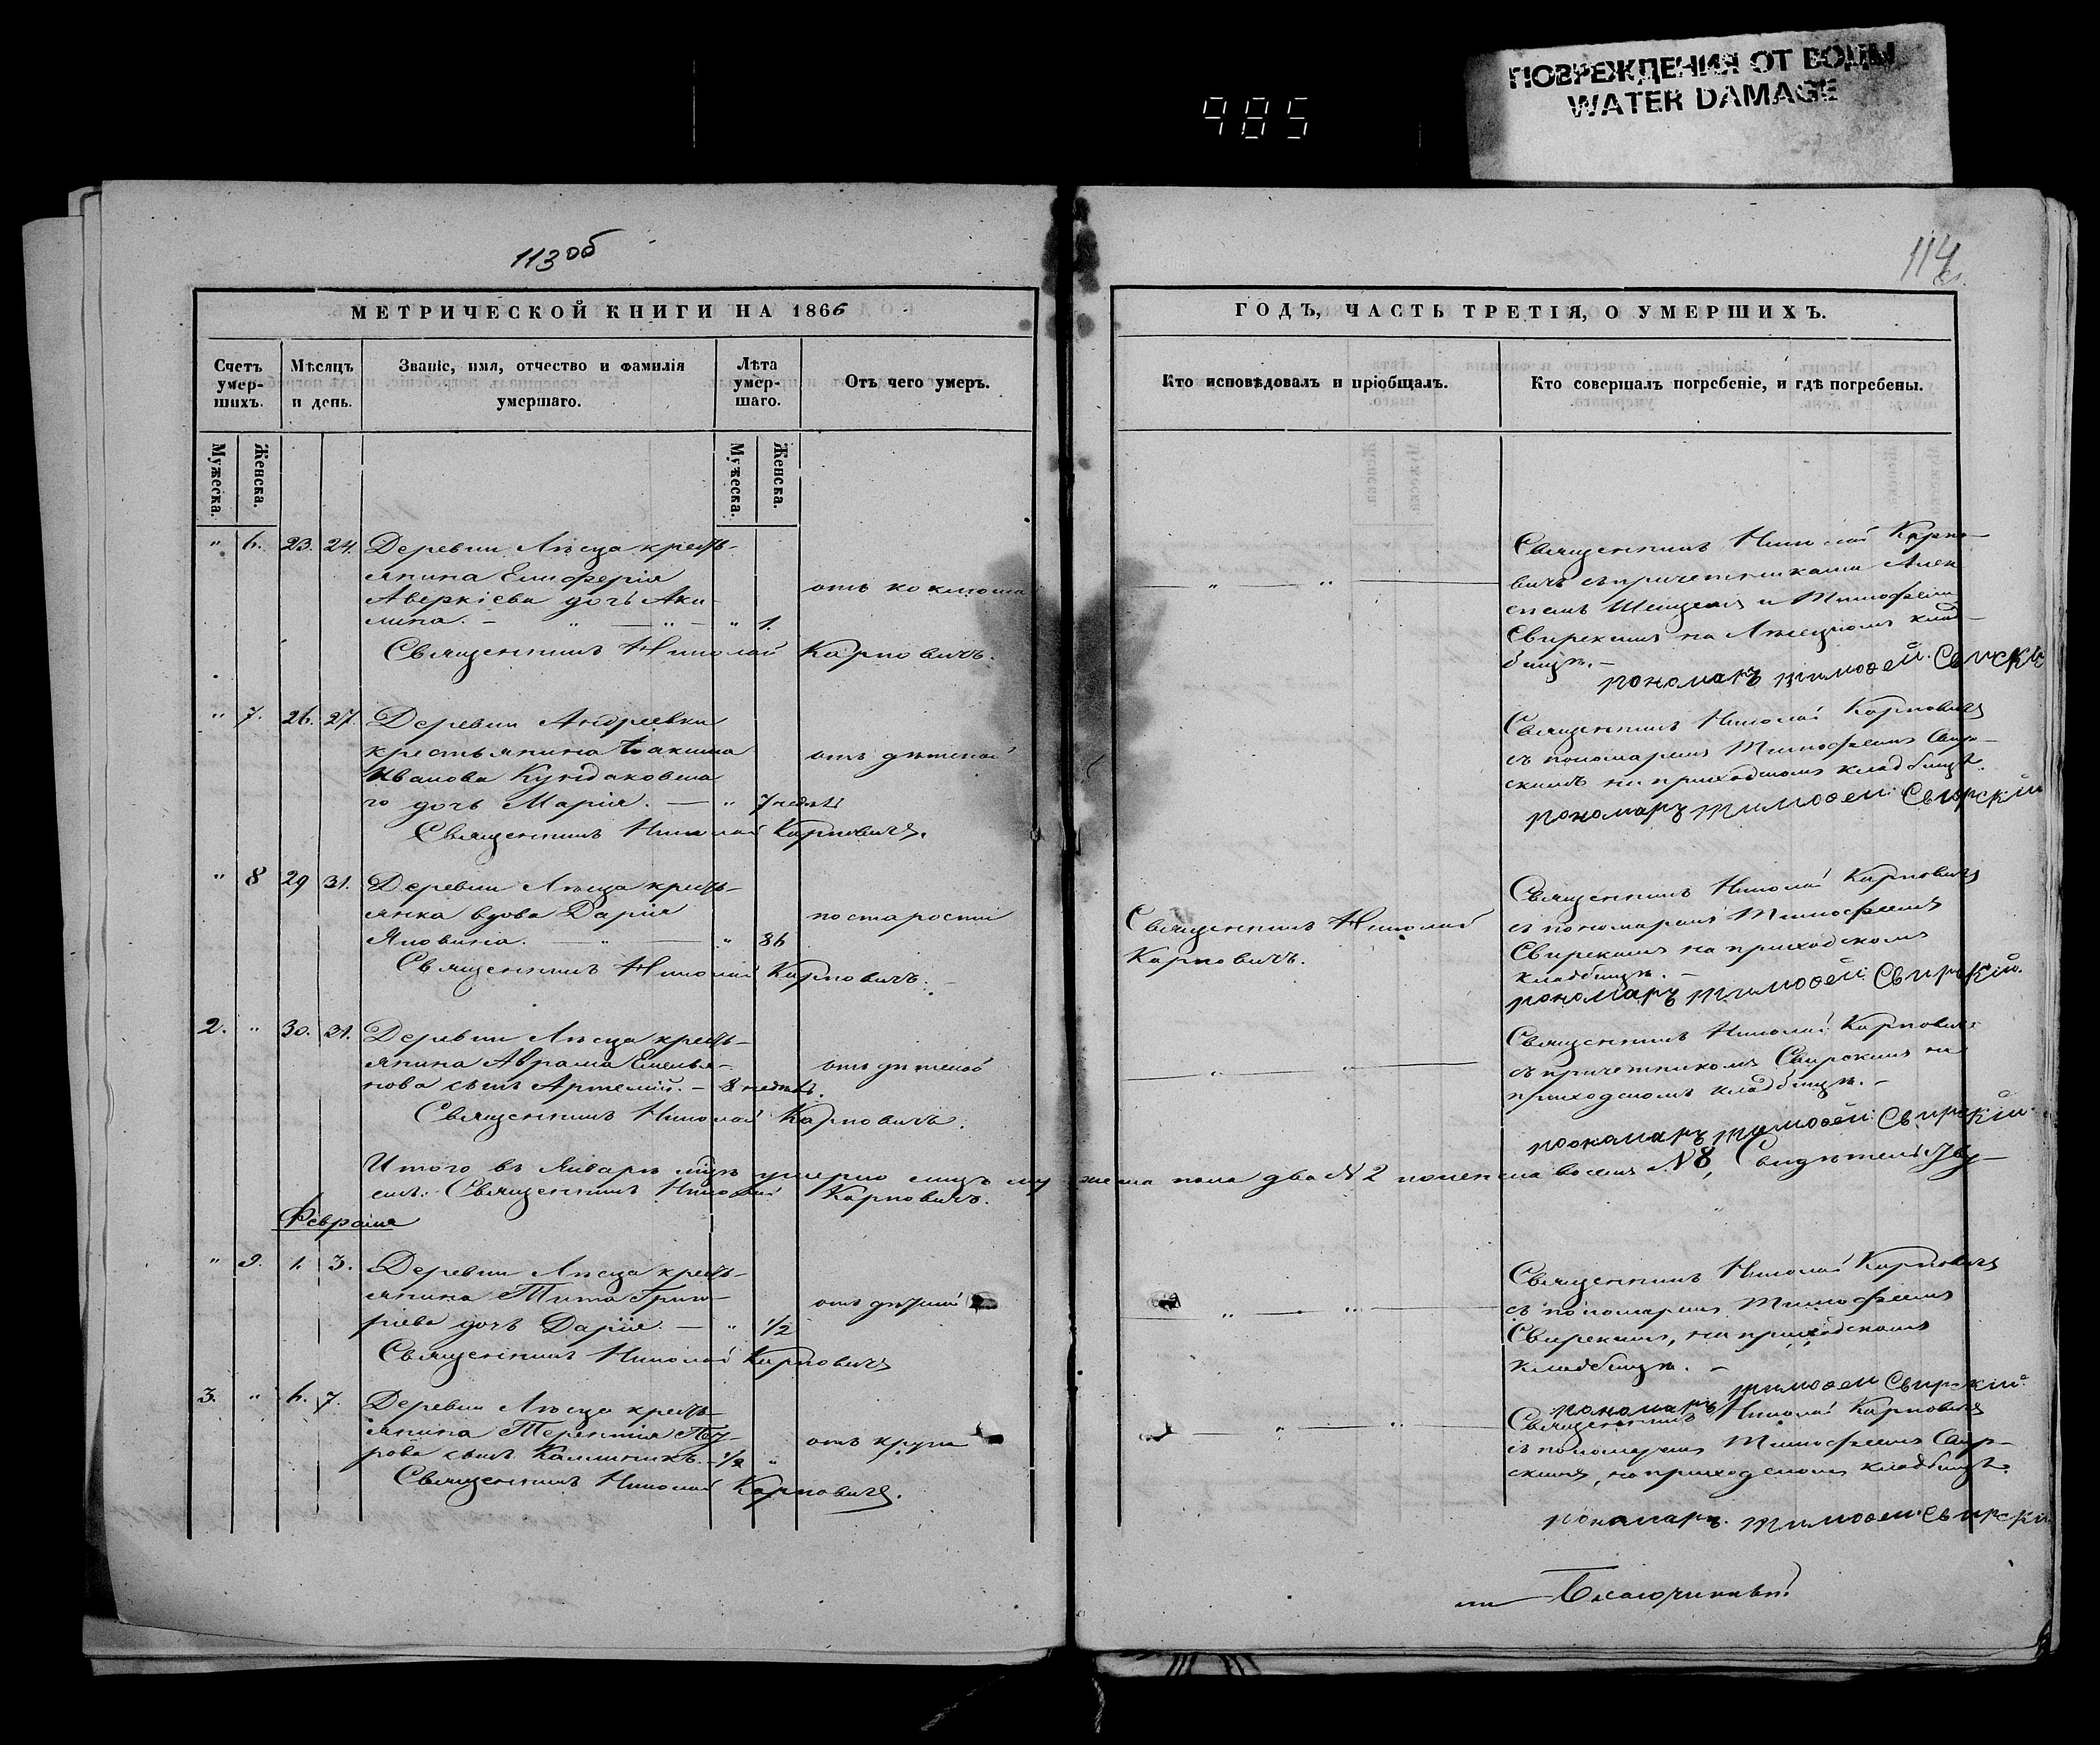 985
ПОВРЕЖДЕНИЯ ОТ ВОДЫ
WATER DAMAGE
113 об
МЕТРИЧЕСКОЙ КНИГИ НА 1866
Счетъ умер-шихъ.
Мѣсяцъ и день.
Званіе, имя, отчество и фамилія умершаго.
Лѣта умер-шаго.
Отъ чего умеръ.
Мужеска.
Женска.
Мужеска.
Женска.
" 6. 23. 24. Деревни Лѣсца кресть-
янина Елиферія
Аверкіева дочь Аки-
лина. " 1.
отъ коклюша
Священникъ Николай Карповичъ.
" 7. 26. 27. Деревни Андреевки
крестьянина Іоакима
Иванова
го дочь Марія. " 7 недѣль
отъ дѣтской
Священникъ Николай Карповичъ.
" 8 29 31. Деревни Лѣсца кресть-
янка вдова Дарія
" 86
по старости
Священникъ Николай Карповичъ.
2. " 30. 31. Деревни Лѣсца кресть-
янина Аврама Емелья-
нова сынъ Артемій. 8 недѣль.
отъ дѣтской
Священникъ Николай Карповичъ.
Итого въ Январѣ мцѣ умерло лицъ му
емъ: Священникъ Николай Карповичъ.
Февраля
" 9. 1. 3. Деревни Лѣсца кресть-
янина Тита Григо-
ріева дочь Дарія. " 1/2
отъ дѣтской
Священникъ Николай Карповичъ
3. " 6. 7. Деревни Лѣсца кресть-
янина Терентія
рова сынъ Каллиникъ. 1/2 "
отъ крупа
Священникъ Николай Карповичъ.
114
ГОДЪ, ЧАСТЬ ТРЕТІЯ, О УМЕРШИХЪ.
Кто исповѣдовалъ и пріобщалъ.
Кто совершалъ погребеніе, и гдѣ погребены.
Священникъ Николай Карпо-
вичъ съ причетниками Алек
и Тимофеемъ
Свирскимъ на Лѣсецкомъ клад-
бищѣ.
пономарь Тимоѳей Свирскій
Священникъ Николай Карповичъ
съ пономаремъ Тимофеемъ Свир-
скимъ на приходскомъ кладбищѣ.
пономарь Тимоѳей Свирскій
Священникъ Николай
Карповичъ.
Священникъ Николай Карповичъ
съ пономаремъ Тимофеемъ
Свирскимъ на приходскомъ
кладбищѣ.
пономарь Тимоѳей Свирскій.
Священникъ Николай Карповичъ
съ причетникомъ Свирскимъ на
приходскомъ кладбищѣ.
пономарь Тимоѳей Свирскій.
жеска пола два N 2 женска восемь N 8,
Священникъ Николай Карповичъ
съ пономаремъ Тимофеемъ
Свирскимъ, на приходскомъ
кладбищѣ.
пономарь Тимоѳей Свирскій
Священникъ Николай Карповичъ
съ пономаремъ Тимофеемъ Свир-
скимъ, на приходскомъ кладбищѣ.
пономарь Тимоѳей Свирскій
Благочинный